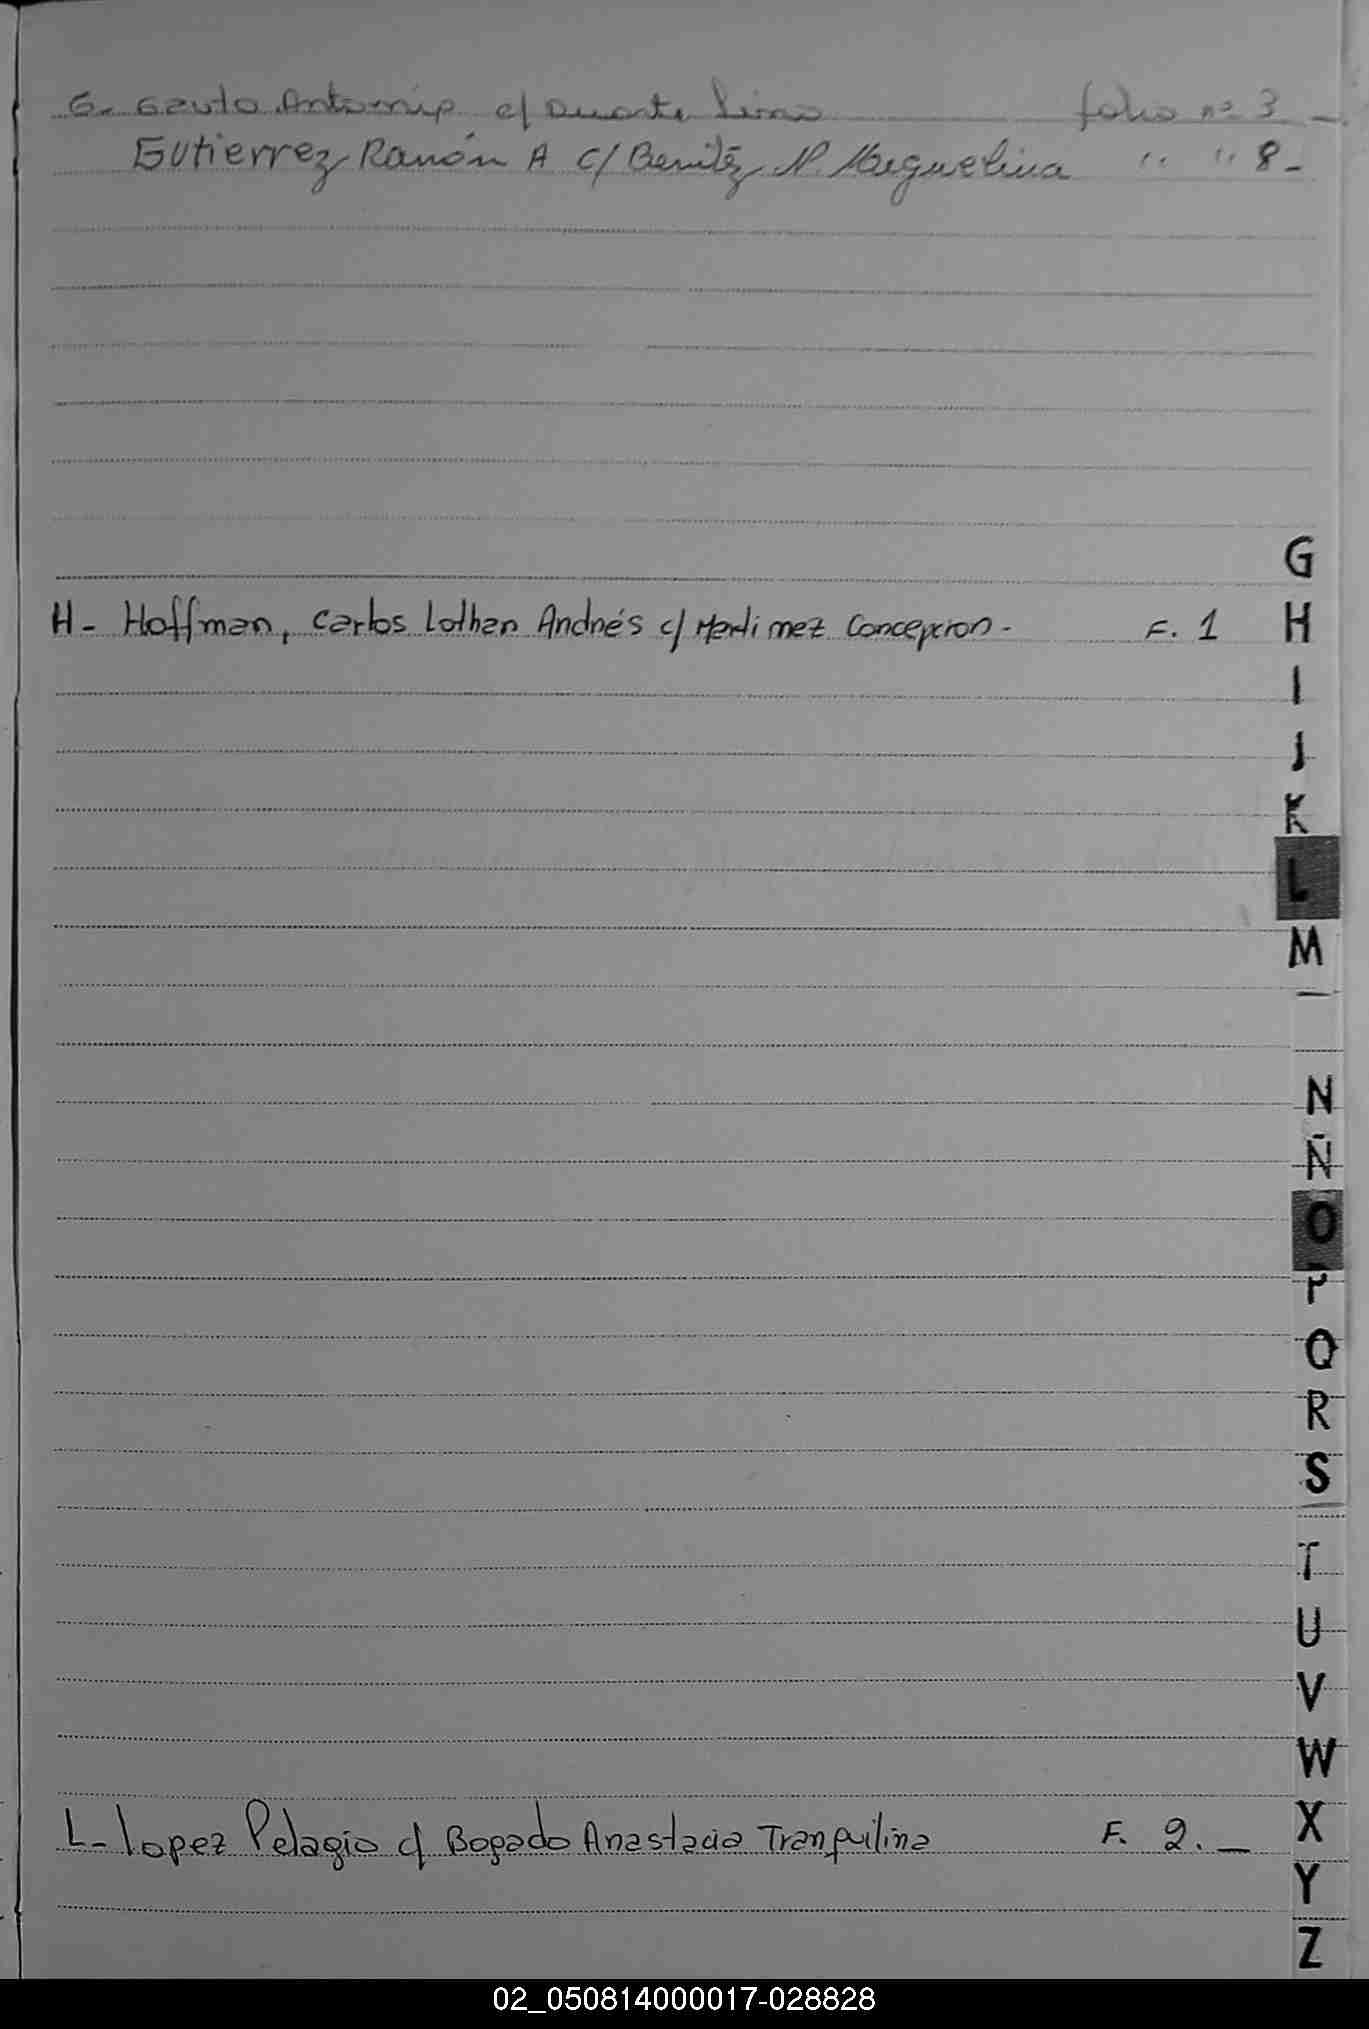 G. Gauto Antonio c/ Duarte folio nº 3 -
Gutierrez Ramón A c/ Benitez N. Miguelina " " 8 -
G
H - Hoffman, Carlos Lothar Andrés c/ Martinez Concepcion - F. 1
H
I
J
K
L
M
N
Ñ
O
P
Q
R
S
T
U
V
W
L - Lopez Pelagio c/ Bogado Anastacia Tranquilina F. 2. -
X
Y
Z
02_050814000017-028828